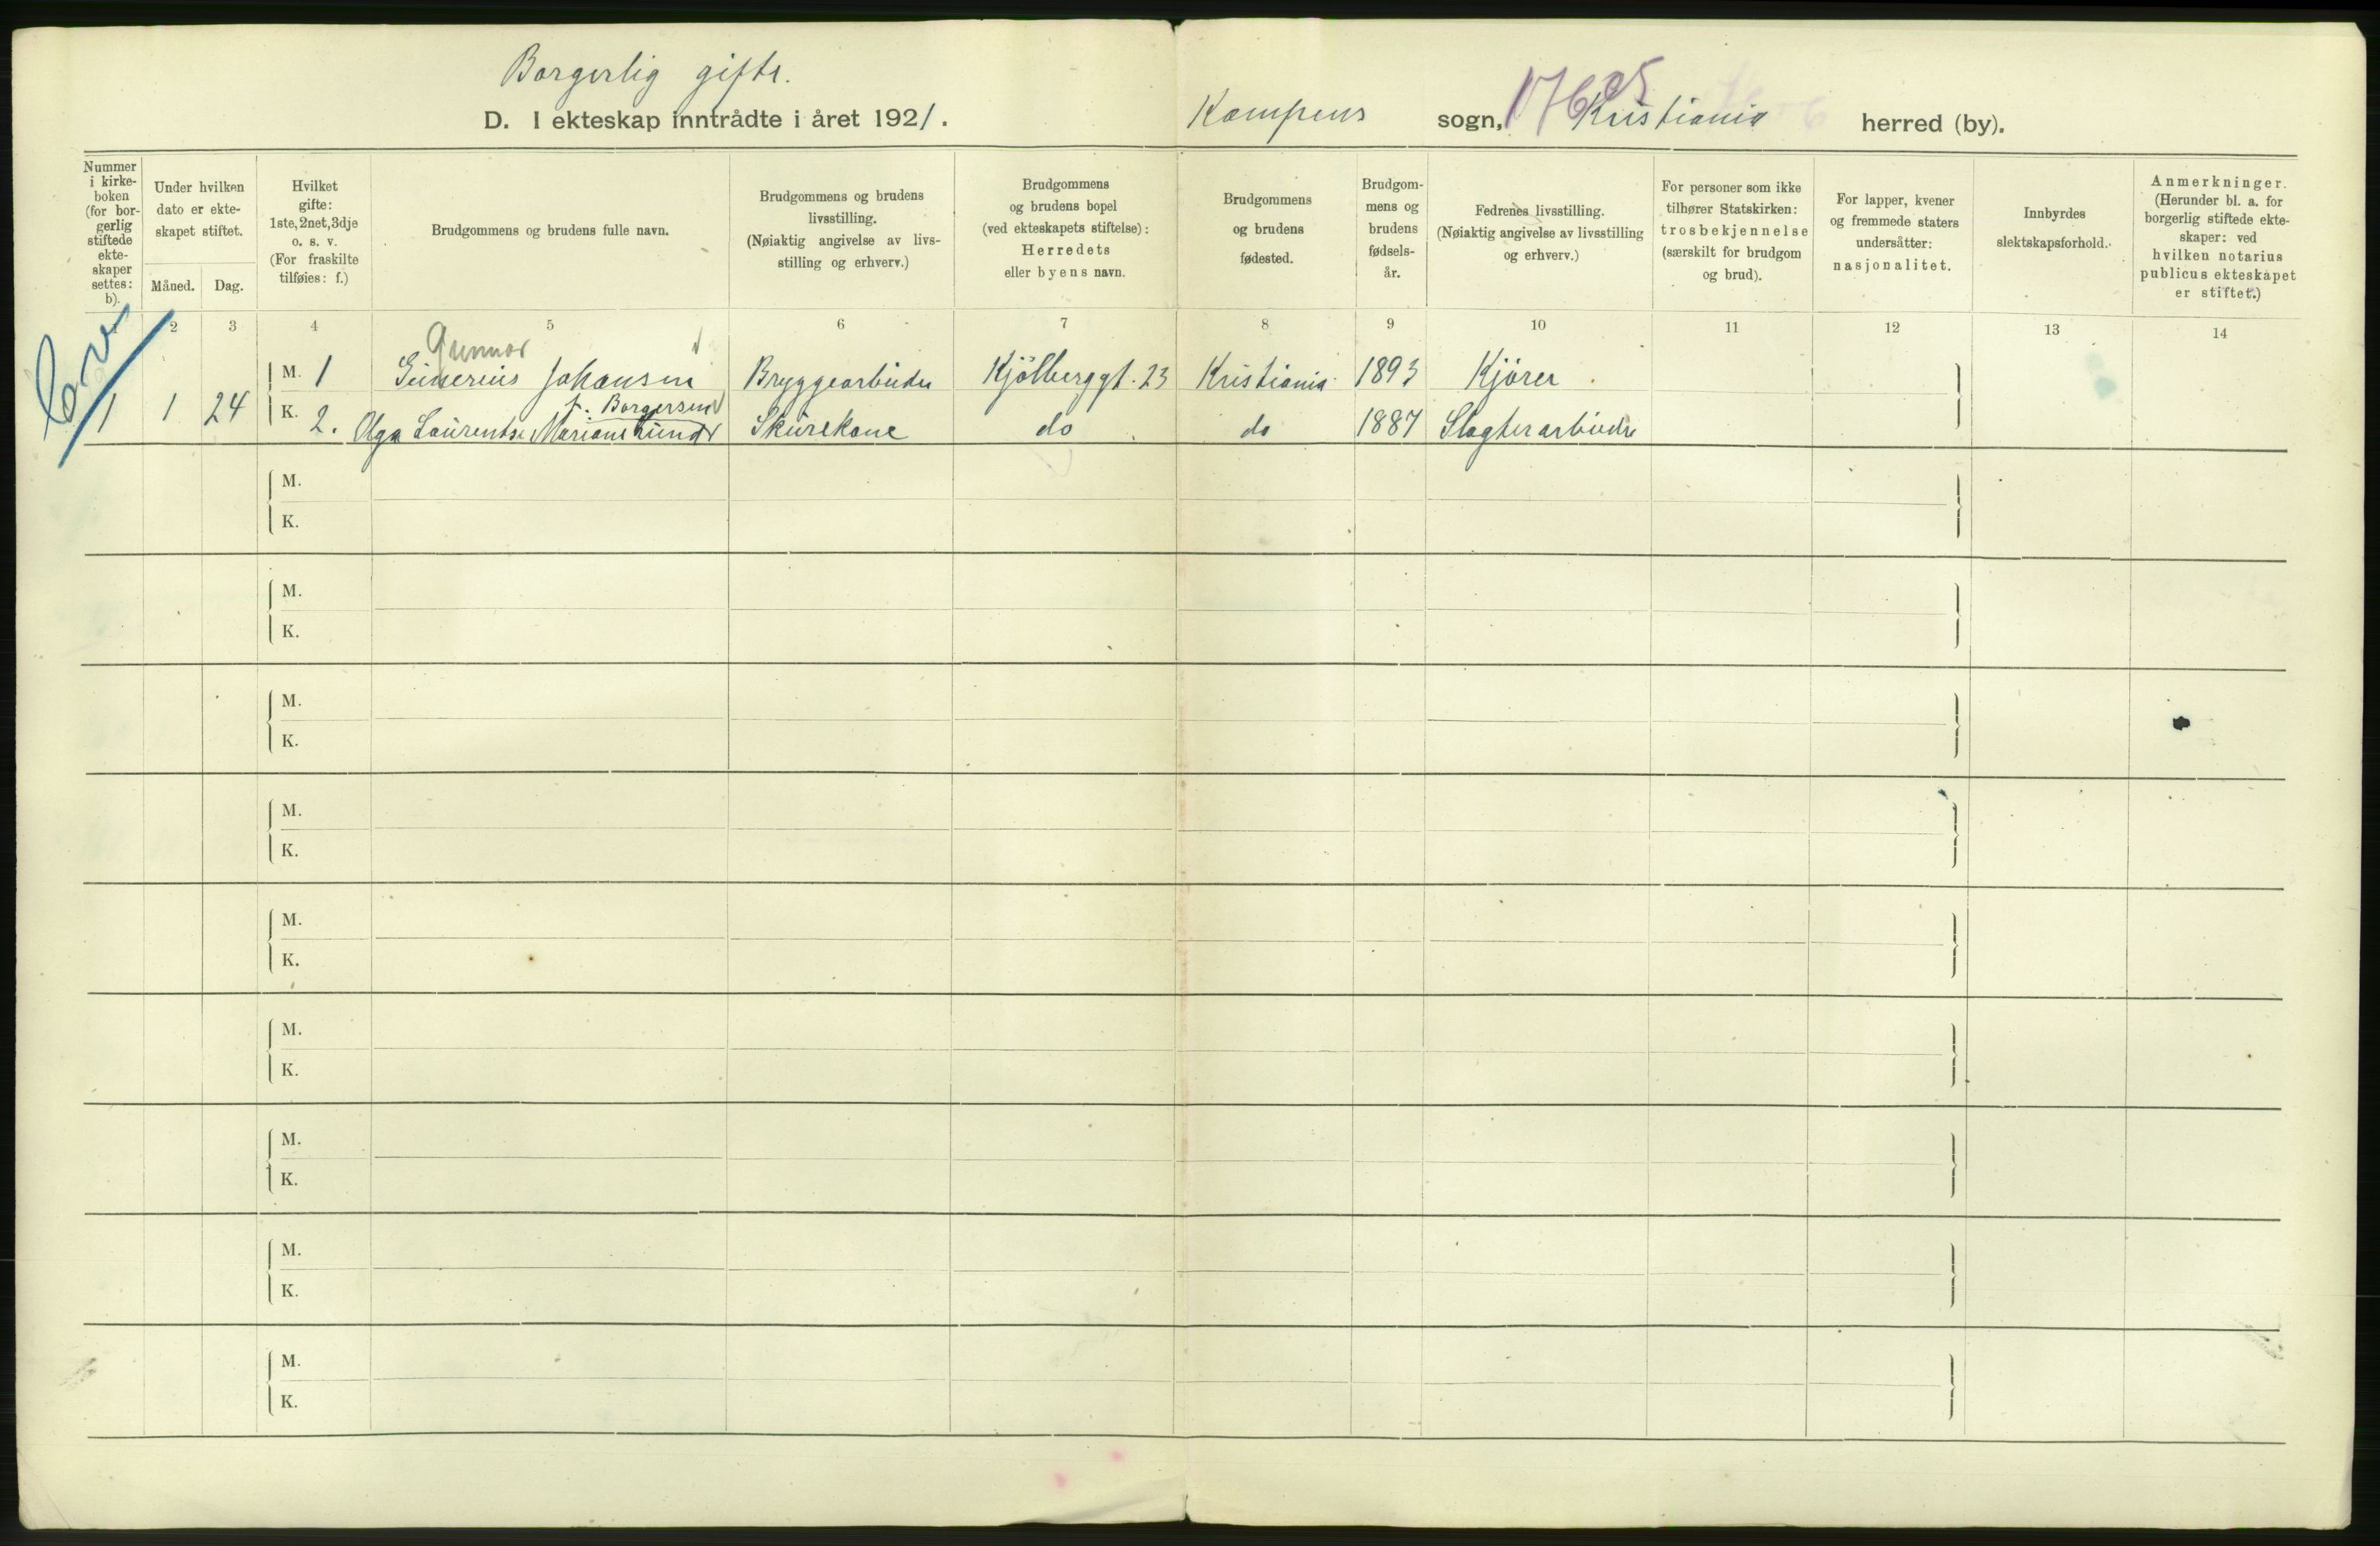 Borgerlig gifte.
D. I ekteskap inntrådte i året 1921. Kampens sogn, Kristiania herred (by).
Nummer i kirke- boken (for bor- gerlig stiftede ekte- skaper settes: b).
Under hvilken dato er ekte- skapet stiftet.
Måned. Dag.
Hvilket gifte: 1ste, 2net, 3dje o. s. v. (For fraskilte tilføies: f.)
Brudgommens og brudens fulle navn.
Brudgommens og brudens livsstilling. (Nøiaktig angivelse av livs- stilling og erhverv.)
Brudgommens og brudens bopel (ved ekteskapets stiftelse): Herredets eller byens navn.
Brudgommens og brudens fødested.
Brudgom- mens og brudens fødsels- år.
Fedrenes livsstilling. (Nøiaktig angivelse av livsstilling og erhverv.)
For personer som ikke tilhører Statskirken: trosbekjennelse (særskilt for brudgom og brud).
For lapper, kvener og fremmede staters undersåtter: nasjonalitet.
Innbyrdes slektskapsforhold.
Anmerkninger. (Herunder bl. a. for borgerlig stiftede ekte- skaper: ved hvilken notarius publicus ekteskapet er stiftet.)
1 2 3 4 5 6 7 8 9 10 11 12 13 14
Gunnar
M. 1 Gunerius Johansen Bryggearbeider Kjølberggt. 23 Kristiania 1893 Kjører
f. Borgersen
1 1 24 K. 2. Olga Laurentse Mariane Lund Skurekone do do 1887 Slagterarbeider
M.
K.
M.
K.
M.
K.
M.
K.
M.
K.
M.
K.
M.
K.
M.
K.
M.
K.